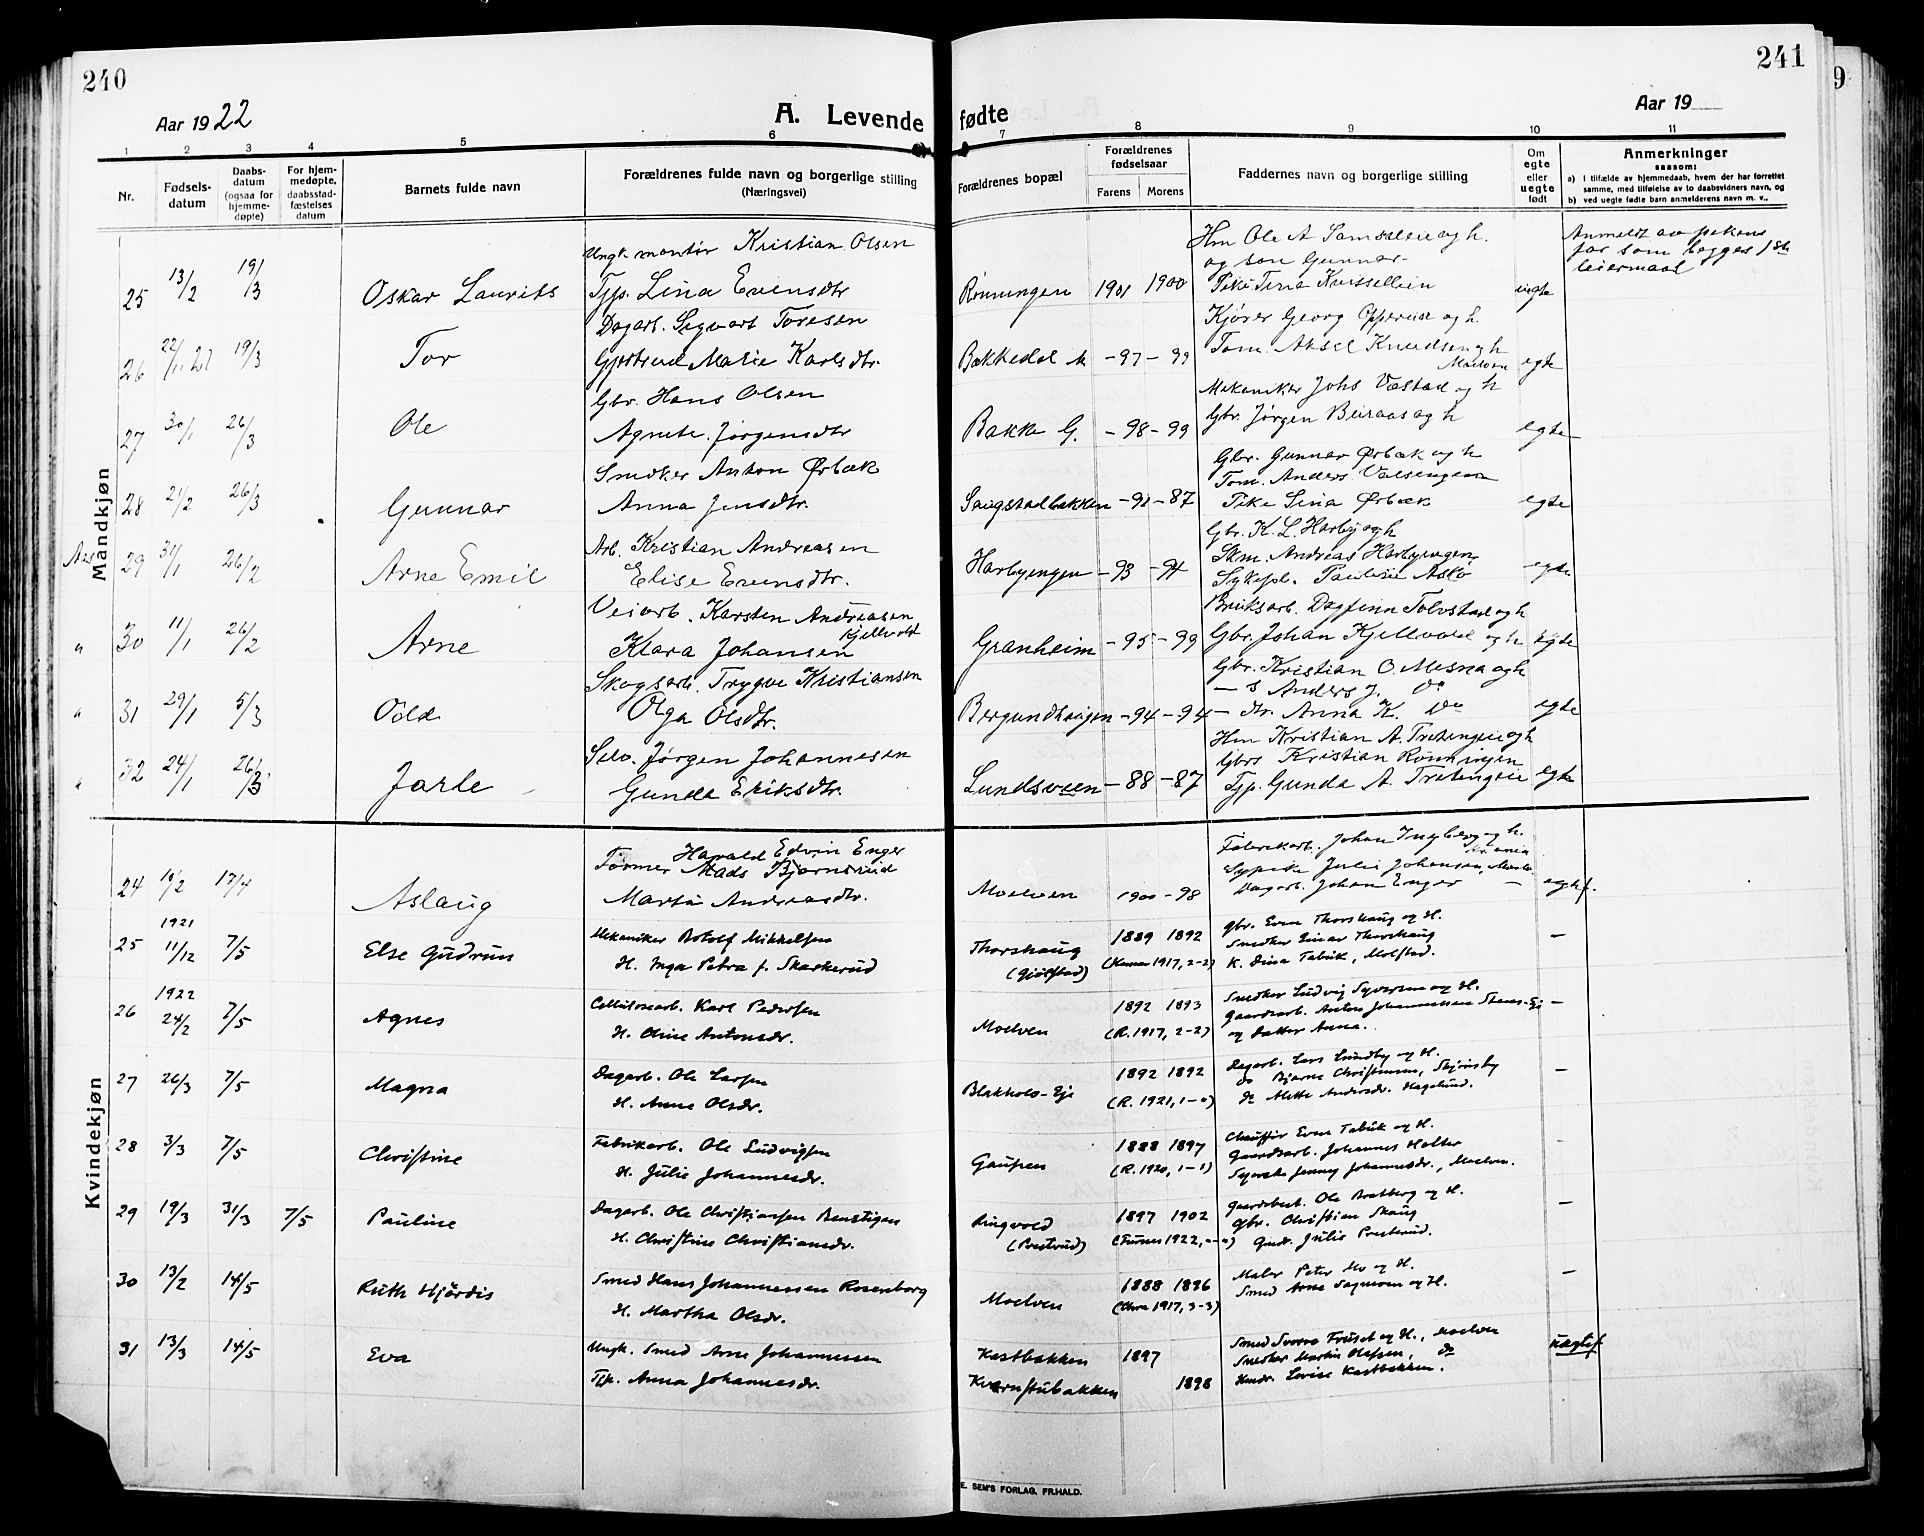 240
241
9
Aar 1922
A. Levende fødte
Aar 19
1 2 3 4 5 6 7 8 9 10 11
Nr.
Fødsels-
datum
Daabs-
datum
(ogsaa for
hjemme-
døpte)
For hjem-
medøpte,
daabsstad-
fæstelses
datum
Barnets fulde navn
Forældrenes fulde navn og borgerlige stilling
(Næringsvei)
Forældrenes bopæl
Forældrenes
fødselsaar
Farens Morens
Faddernes navn og borgerlige stilling
Om
egte
eller
uegte
født
Anmerkninger
saasom:
a) i tilfælde av hjemmedaab, hvem der har forrettet
samme, med tilføielse av to daabsvidners navn, og
b) ved uegte fødte barn anmelderens navn m. v..
Mandkjøn
25 13/2 19/3 Oskar Laurits
Ungk. montør Kristian Olsen
Tjp. Lina Evensdtr
Rønningen 1901 1900
Hm Ole A og h.
og søn Gunnar
Pike Tina
uegte
Anmeldt av pikens
far som begges 1ste
leiermaal
26 22/11 21 19/3 Tor
Dagarb. Sigvart Toresen
Gjertrud Marie Karlsdtr.
Bakkedal -97 -99
Kjører Georg og h.
Tom. Aksel Knudsen og h
Moelven
egte
27 30/1 26/3 Ole
Gbr. Hans Olsen
Agnete Jørgensdtr
Bakke G. -98 -99
Mekaniker Johs Væstad og h
Gbr. Jørgen Beiraas og h
egte
28 21/2 26/3 Gunnar
Snedker Anton Ørbæk
Anna Jensdtr.
Saugstadbakken -91 -87
Gbr. Gunnar Ørbæk og h
Tom. Anders Valsengen
Pike Lina Ørbæk
egte
Aas 29 31/1 26/2 Arne Emil
Arb. Kristian Andreasen
Elise Evensdtr.
Harbyengen -93 -94
Gbr. K. L. Harby og h
Skm. Andreas Harbyengen
Sykepl. Pauline Askø
egte
" 30 11/1 26/2 Arne
Veiarb. Karsten Andreasen
Kjellvold
Klara Johansen
Granheim -95 -99
Bruksarb. Dagfinn Tolvstad og h
Gbr. Johan Kjellvold og h
egte
" 31 29/1 5/3 Odd
Skogsarb. Trygve Kristiansen
Olga Olsdtr.
Bergundhaugen -94 -94
Gbr. Kristian O. Mesna og h
- s Anders J. Do
- dtr. Anna K. Do
egte
" 32 24/1 26/3 Jarle
Selv. Jørgen Johannesen
Gunda Eriksdtr.
Lundsveen -88 -87
Hm Kristian A. Tretengeie og h
Gbrs Kristian Rønningen
Tjp. Gunda A. Tretengeie
egte
Kvindekjøn
24 19/2 17/4 Aslaug
Harald Edvin Enger
Former Mads Bjørnerud
Marta Andreasdtr.
Moelven 1900 -98
Fabrikarb. Johan Ingberg og h.
Sypike Julie Johansen,
Dagarb. Johan Enger -
egte f.
25 1921 11/12 7/5 Else Gudrun
Mekaniker Botolf Mikkelsen
H. Inga Petra f. Skarkerud
Thorshaug
(Gjølstad)
1889 1892
(Hamar 1917, 2-2)
gbr. Even Thorshaug og H.
Snedker Einar Thorshaug
K. Dina Tabuk, Molstad.
-
26 1922 24/2 7/5 Agnes
Cellulosearb. Karl Pedersen
H. Oline Antonsdr.
Moelven
1892 1893
(R. 1917, 2-2)
Snedker Ludvig Syversen og H.
gaardsarb. Anton Johannessen Steens-Eje
og datter Anna.
-
27 26/3 7/5 Magna
Dagarb. Ole Larsen
H. Anne Olsdr.
Blakhols-Eje
1892 1892
(R. 1921, 1-0)
Dagarb. Lars Lundby og H.
do Bjarne Christiansen, Skjønsby
do Mette Andersdr. Hagelund.
-
28 3/3 7/5 Christine
Fabrikarb. Ole Ludvigsen
H. Julie Johannesdr.
Gaupen
1888 1897
(R. 1920, 1-1)
Chauffør Even Tabuk og H.
gaardsarb. Johannes Holter
Syerske Jenny Johannesdr., Moelven.
-
29 19/3 31/3 7/5 Pauline
Dagarb. Ole Christiansen Benstigen
H. Christine Christiansdr.
Ringvold
(Prestrud)
1897 1902
(Furnes 1922, -)
gaardsbest. Ole Bratberg og H.
gbr. Christian Skaug
Gmdr. Julie Prestrud.
-
30 13/2 14/5 Ruth Hjørdis
Smed Hans Johannessen Rosenborg
H. Martha Olsdr.
Moelven
1888 1896
(Chra 1917, 3-3)
Maler Peter Mo og H.
Smed Arne Sagveen og H.
-
31 13/3 14/5 Eva
Ungk. Smed Arne Johannessen
Tjp. Anna Johannesdr.
Kastbakken 1897
Kvernstubakken 1898
Smed Sverre Fruset og H., Moelven
Snedker Martin Olssen, do
Hmdr. Lovise Kastbakken.
uegte f.
E. SEM'S FORLAG, FR.HALD.